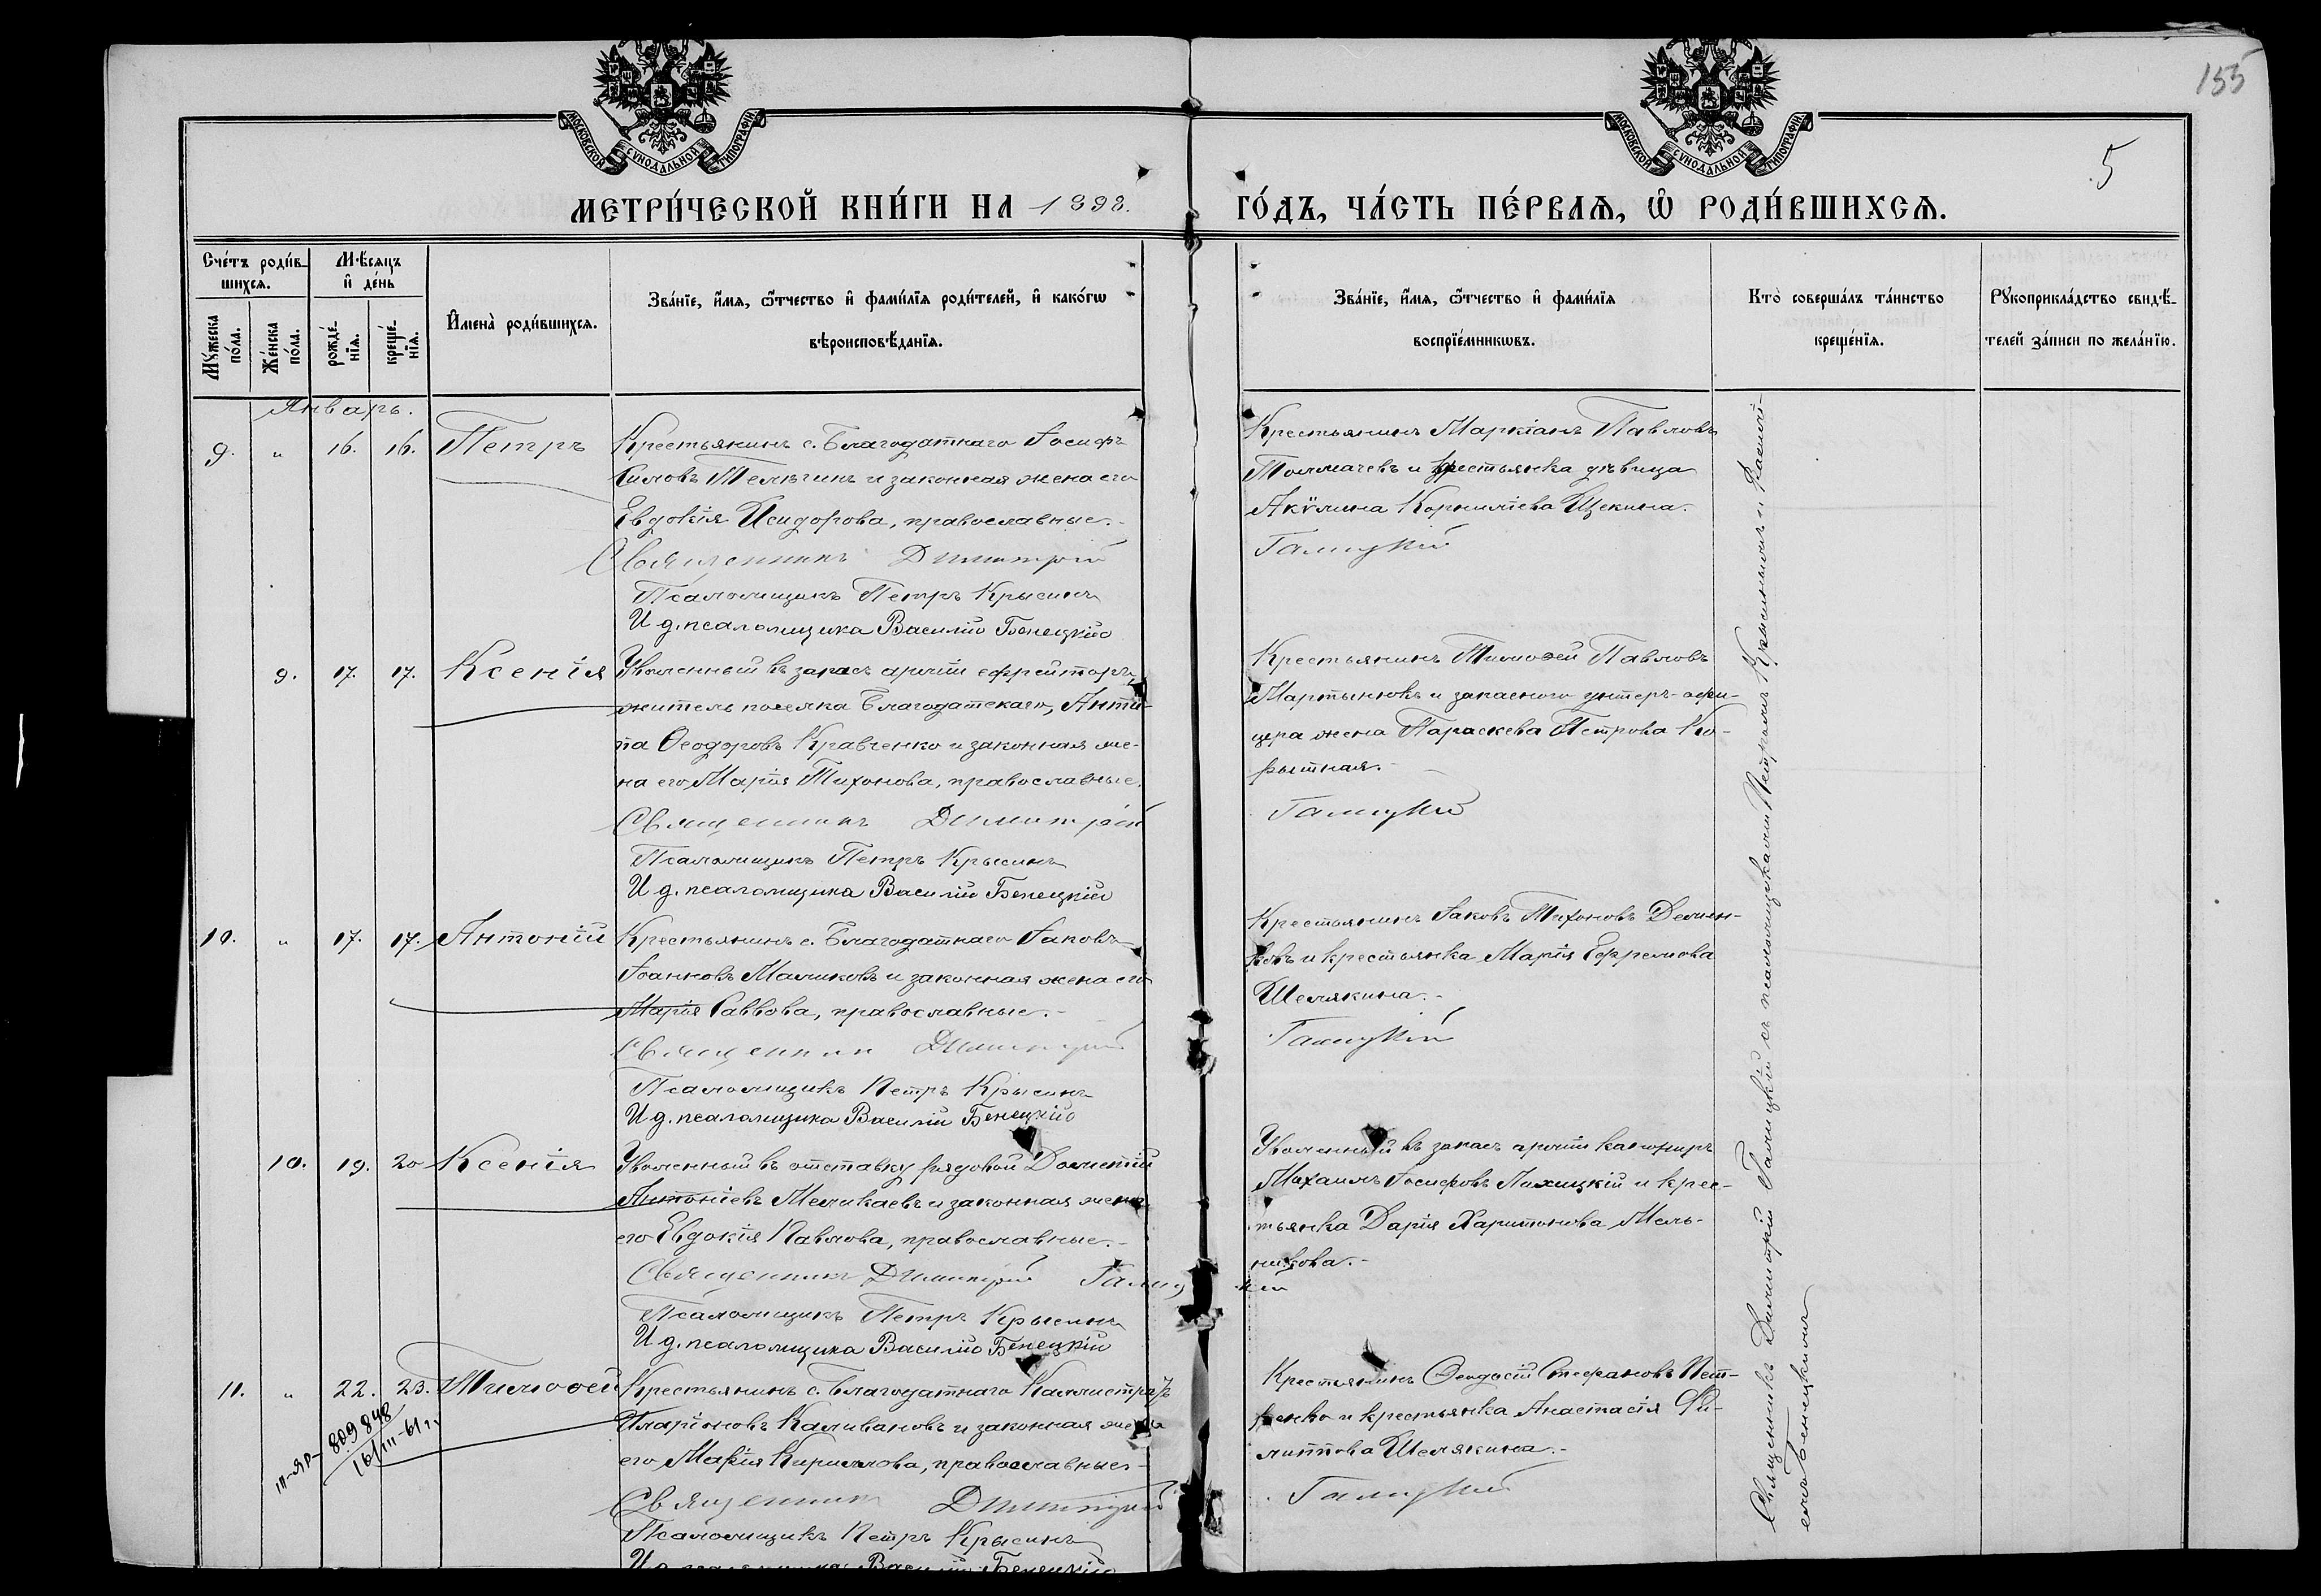 155
5
МОСКОВСКОЙ СѴНОДАЛЬНОЙ ТИПОГРАФІИ
МОСКОВСКОЙ СѴНОДАЛЬНОЙ ТИПОГРАФІИ
МЕТРИ́ЧЕСКОЙ КНИ́ГИ НА 1898.
ГО́ДЪ, ЧА́СТЬ ПЕ́РВАѦ, Ѡ҆ РОДИ́ВШИХСѦ.
Сче́тъ роди́в-
шихсѧ.
Мꙋ́жеска по́ла.
Же́нска по́ла.
Мѣ́сѧцъ
и҆ де́нь
рожде́-
нїѧ.
креще́-
нїѧ.
И҆мена̀ роди́вшихсѧ.
Зва́нїе, и҆́мѧ, ѻ҆́тчество и҆ фами́лїѧ роди́телей, и҆ како́гѡ
вѣроисповѣ́данїѧ.
Зва́нїе, и҆́мѧ, ѻ҆́тчество и҆ фами́лїѧ
воспрїе́мникѡвъ.
Кто̀ соверша́лъ та́инство
креще́нїѧ.
Рꙋкоприкла́дство свидѣ́-
телей за́писи по жела́нїю.
Январь.
9. " 16. 16. Петръ Крестьянинъ с. Благодатнаго Іосифъ
Силовъ Телѣгинъ и законная жена его
Евдокія Исидорова, православные.-
Священникъ Димитрій
Псаломщикъ Петръ Крысинъ
И д. псаломщика Василій Бенецкій
Крестьянинъ Маркіанъ Павловъ
Толмачевъ и крестьянка дѣвица
Акулина Корнилiева Щекина.
Галицкій
9. 17. 17. Ксенія Уволенный въ запасъ арміи ефрейторъ,
житель поселка Благодатскаго, Анти-
па Ѳеодоровъ Кравченко и законная же-
на его Марія Тихонова, православные.
Священникъ Димитрій
Псаломщикъ Петръ Крысинъ
И д. псаломщика Василій Бенецкій
Крестьянинъ Тимоѳей Павловъ
Мартынювъ и запаснаго унтеръ-офи-
цера жена Параскева Петрова Ко-
рытная.-
Галицкій
10. " 17. 17. Антоній Крестьянинъ с. Благодатнаго Іаковъ
Іоанновъ Маликовъ и законная жена его
Марія Саввова, православные.-
Священникъ Димитрій
Псаломщикъ Петръ Крысинъ
И д. псаломщика Василій Бенецкій
Крестьянинъ Іаковъ Тихоновъ Демен-
ковъ и крестьянка Марія Ефремова
Шелякина.-
Галицкій
10. 19. 20 Ксенія Уволенный въ отставку рядовой Дометій
Антоніевъ Меликаевъ и законная жена
его Евдокія Павлова, православные.-
Священникъ Димитрій Галицкій
Псаломщикъ Петръ Крысинъ
И д. псаломщика Василій Бенецкій
Уволенный въ запасъ арміи канониръ
Михаилъ Іосифовъ Лихицкій и крес-
тьянка Дарія Харитонова Мель-
никова.-
11. " 22. 23. Тимоѳей Крестьянинъ с. Благодатнаго Каллистратъ
Иларіоновъ Каливановъ и законная жена
его Марія Кириллова, православные.-
Священникъ Димитрій
Псаломщикъ Петръ Крысинъ
И д. псаломщика Василій Бенецкій
III-ЯР- 809848
16/III-61 г.
Крестьянинъ Ѳеодосій Стефановъ Пет-
ренко и крестьянка Анастасія Фи-
липпова Шелякина.-
Галицкій
Священникъ Димитрій Галицкій съ псаломщиками Петромъ Крысинымъ и Васи-
ліемъ Бенецкимъ